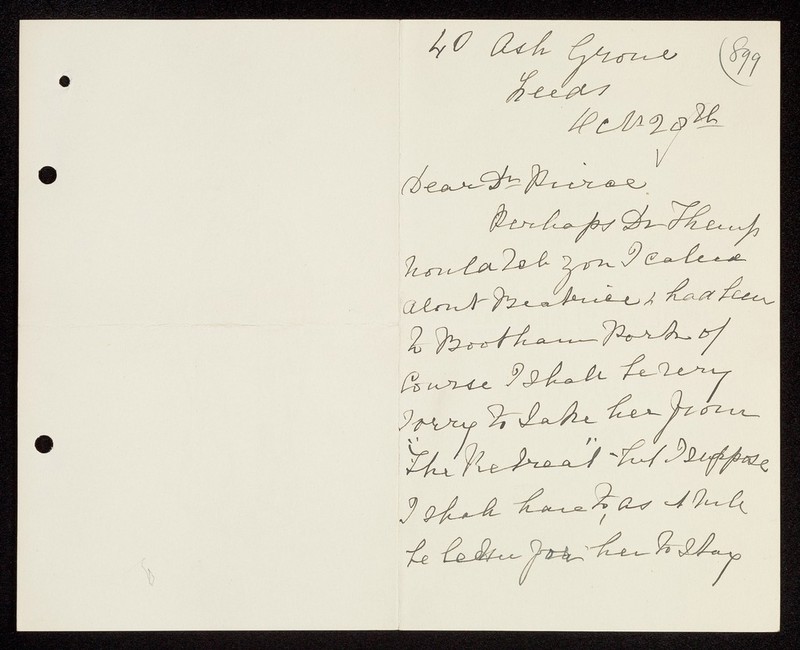 40 Ash Grove
(899
Leeds
Oct 28th
Dear Dr Pierce
Perhaps Dr Kemp
would tell you I called
about Beatrice & had been
to Bootham Park of
Course I shall be very
sorry to take her from
"The Retreat" - but I suppose
I shall have to, as it will
be better for her to stay